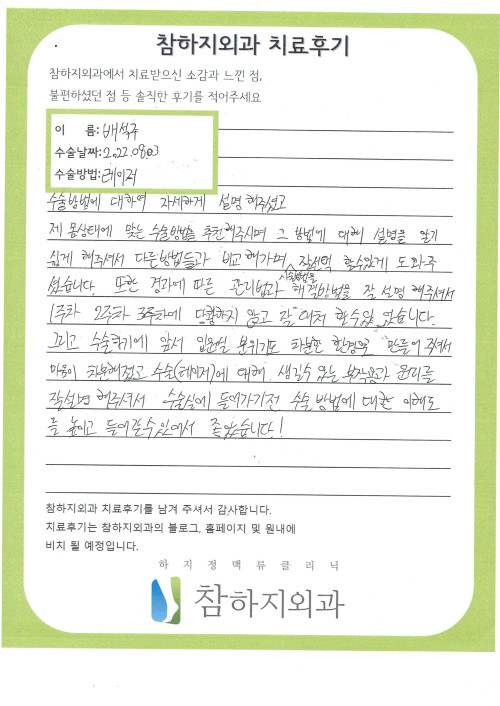 참하지외과 치료후기
참하지외과에서 치료받으신 소감과 느낀 점,
불편하셨던 점 등 솔직한 후기를 적어주세요
이 름: 배석주
수술날짜: 2022.08.03
수술방법: 레이저
수술방법에 대하여 자세하게 설명해주셨고
제 몸상태에 맞는 수술방법을 추천해주시며 그 방법에 대해 설명을 알기
쉽게 해주셔서 다른방법들과 비교해가며 선택 할수있게 도와주
셨습니다. 또한 경과에 따른 관리법과 해결방법을 잘 설명 해주셔서
1주차 2주차 3주차에 당황하지 않고 잘 대처 할수 있었습니다.
그리고 수술하기에 앞서 입원실 분위기도 차분한 환경을 만들어 주셔서
마음이 차분해졌고 수술(레이저)에 대해 생길수 있는 부작용과 원리를
잘설명 해주셔서 수술실에 들어가기전 수술 방법에 대한 이해도
를 높이고 들어갈수있어서 좋았습니다!
참하지외과 치료후기를 남겨 주셔서 감사합니다.
치료후기는 참하지외과의 블로그, 홈페이지 및 원내에
비치 될 예정입니다.
하지정맥류클리닉
참하지외과